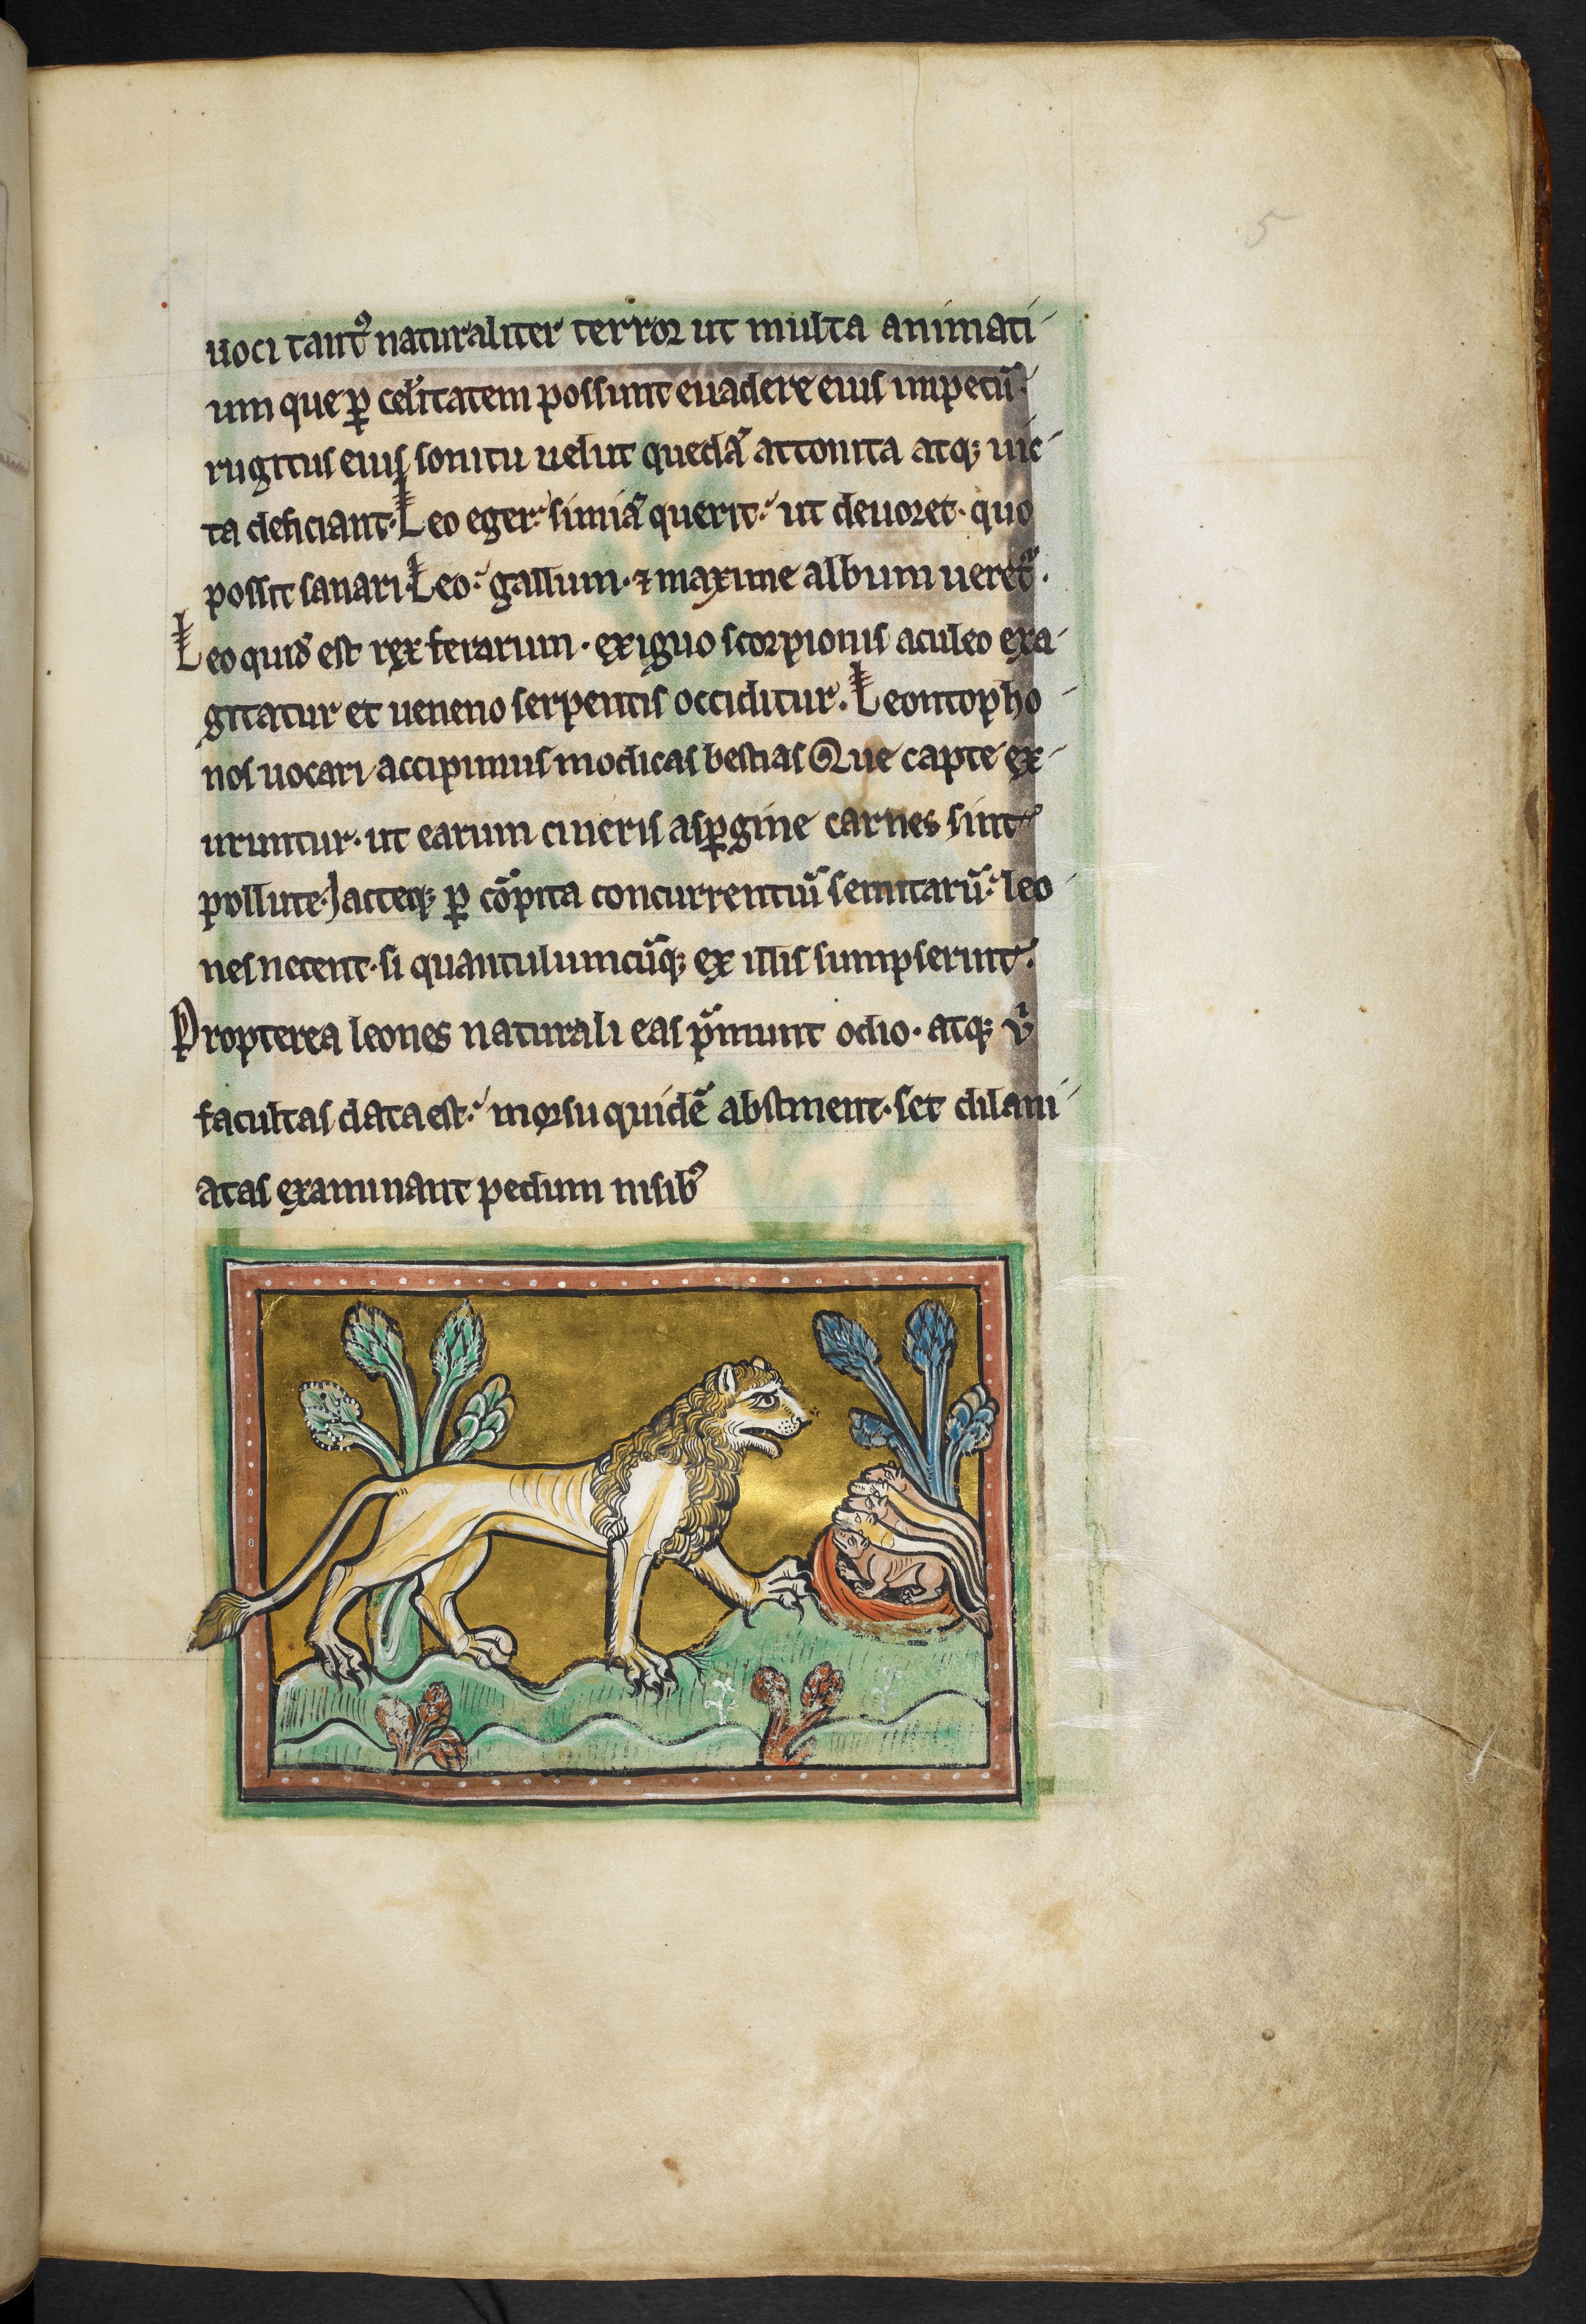 5
uoci tantꝰ naturaliter terror ut multa animati
um que ꝑ celitatem possunt euadere eius impetū.
rugitus eius sonitu uelut quedā attonita atq; uic
ta deficiant. Leo eger: simiā querit: ut deuoret. quo
possit sanari. Leo: gallum. ⁊ maxime album ueret᷑.
Leo quid̾ est rex ferarum. exiguo scorpionis aculeo exa
gitatur et ueneno serpentis occiditur. Leontopho
nos uocari accipimus modicas bestias Que capte ex
uruntur. ut earum cineris asꝑgine carnes sint
pollute. Jacteq; ꝑ cōpita concurrentiū semitarū: leo
nes necent. si quantulumcūq; ex illis sumpserint.
Propterea leones naturali eas pͥmunt odio. atq; uͥ
facultas data est: morsu quidē abstinent. set dilani
atas examinant pedum nisibꝰ